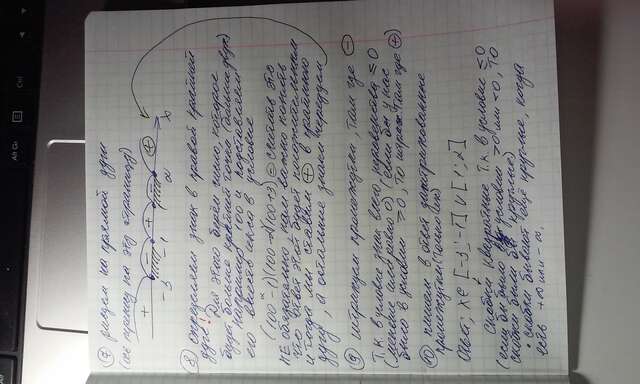 ⑦ рисуем на прямой дуги
(ось принесу на эту страницу)
+ − + − +
-3 -1 2 x
⑧ определяем знак в правой крайней
дуге!
Для этого берём число, которое
будет больше крайней точки (больше двух)
Например 100 и подставляем
его вместо икса в условие
(100-1)(100-2)(100+3) ⊖ считать это
НЕ обязательно, нам важно понять
что ответ этот будет положительным
и тогда мы ставим ⊕ в крайнюю
дугу, а остальные знаки чередуем
⑨ штрихуем промежутки, там где ⊖
т.к. в условие знак всего неравенства ≤ 0
(меньше или равно 0) (если бы у нас
было в условии >0, то штрих. там где ⊕)
⑩ пишем в ответ заштрихованные
промежутки (только их)
Ответ; x∈ [-3;-1] U [1;2]
скобки квадратные т.к. в условие ≤0
(если бы было в условии >0 или <0, то
скобки были бы круглые)
• скобки бывают ещё круглые, когда
есть +∞ или -∞.